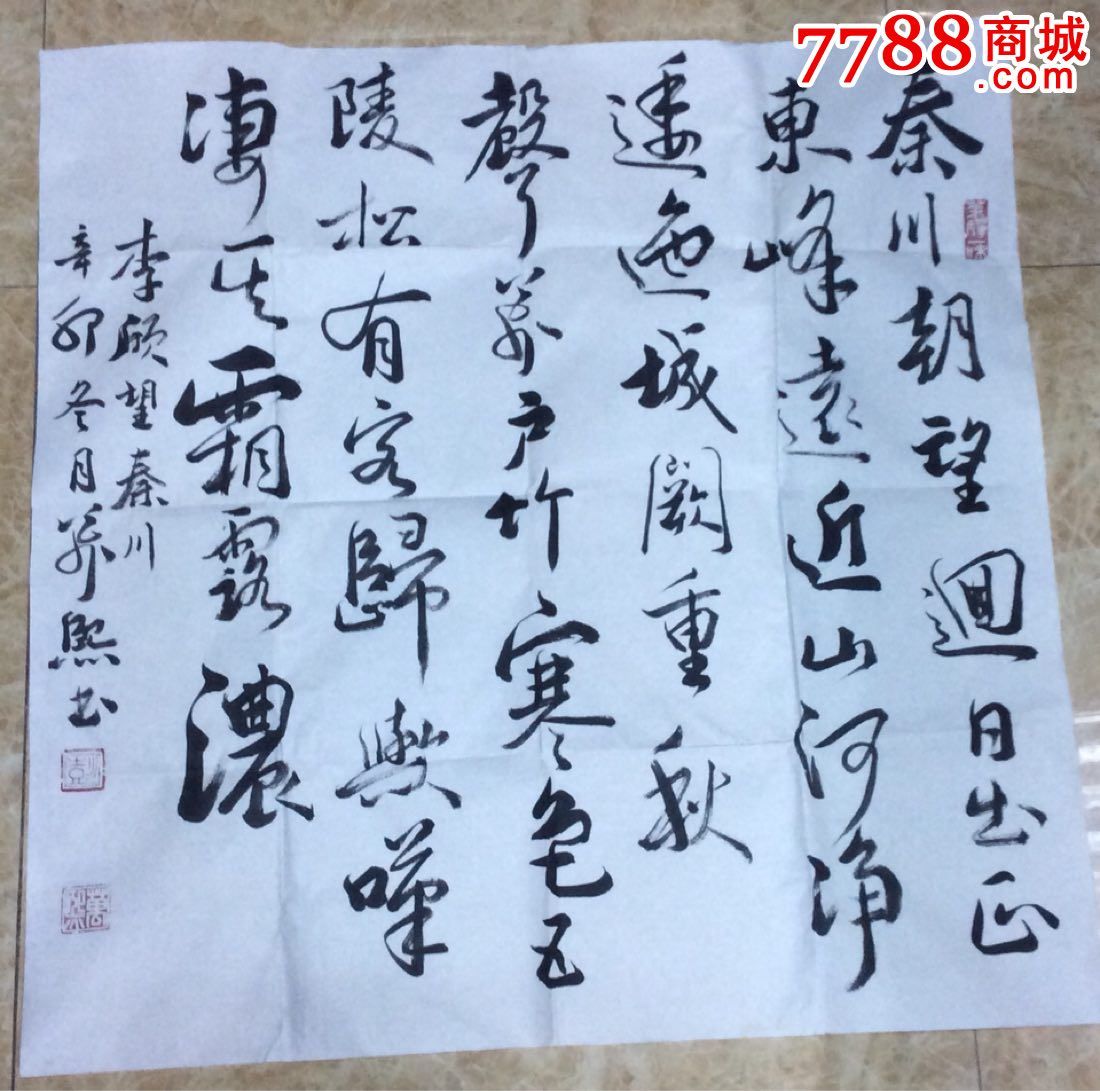 7788商城
.com
秦川朝望迴日出正
東峰遠近山河净
逶迤城闕重秋
聲萬户竹寒色五
陵松有客歸歟嘆
凄其霜露濃
李頎望秦川
辛卯冬月萬熙书
萬熙